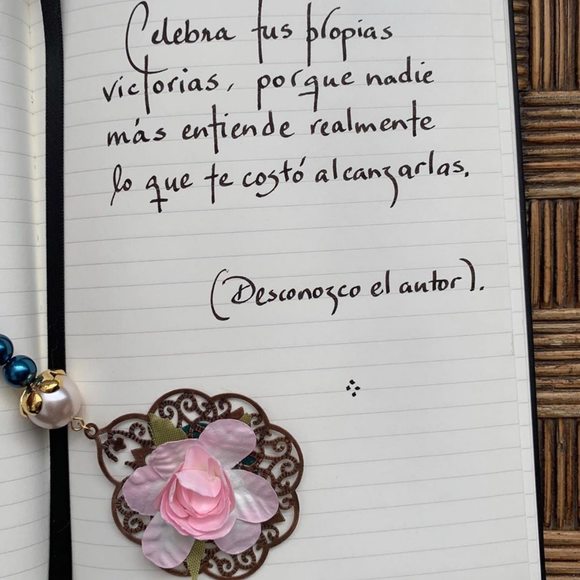 Celebra tus propias
victorias, porque nadie
más entiende realmente
lo que te costó alcanzarlas.
(Desconozco el autor).